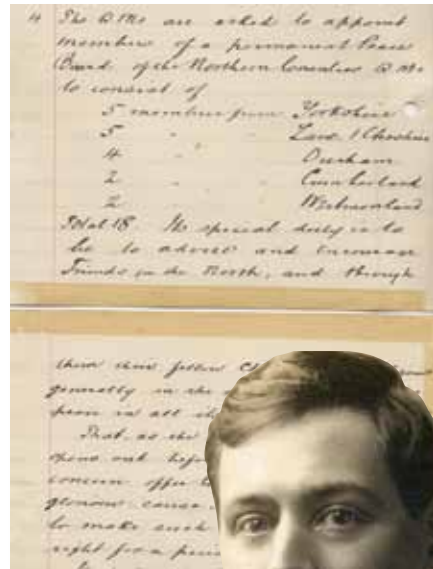 4 The Q Ms are asked to appoint
members of a permanent Peace
Board of the Northern Counties Q Ms
to consist of
5 members from Yorkshire
5 " " Lancs / Cheshire
4 " " Durham
2 " " Cumberland
2 " " Westmorland
Total 18 The special duty is to
be to advise and encourage
Friends in the North, and through
them their fellow
generally in the
peace in all
That, as the
opens out before
concern
glorious cause
to make such
right for a